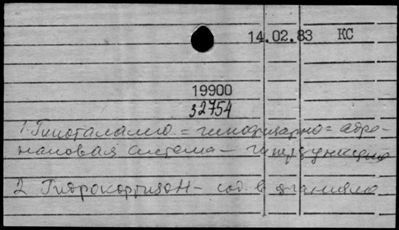 14.02.83 КС
19900
32754
1. Гипоталамо = гипофизарно = адре-
наловая система — гиперфункция
2. Гидрокортизон — сод. в